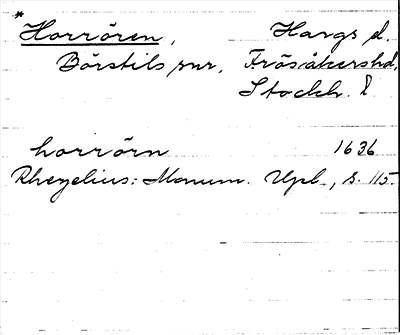 * Horrören, Hargs d.
Börstils snr, Frösåkers hd,
Stockh. l
horrörn 1636
Rhezelius: Monum. Upl., s. 115.